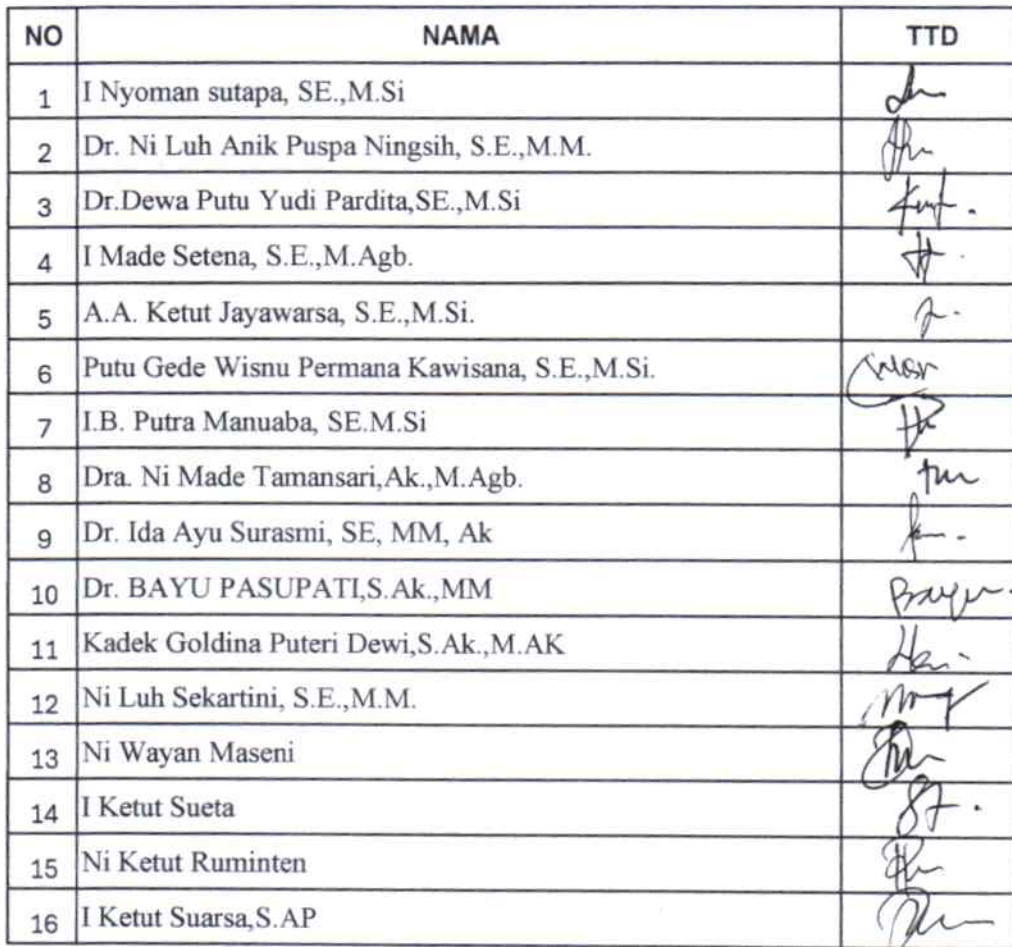 NO NAMA TTD
1 I Nyoman sutapa, SE.,M.Si
2 Dr. Ni Luh Anik Puspa Ningsih, S.E.,M.M.
3 Dr.Dewa Putu Yudi Pardita,SE.,M.Si
4 I Made Setena, S.E.,M.Agb.
5 A.A. Ketut Jayawarsa, S.E.,M.Si.
6 Putu Gede Wisnu Permana Kawisana, S.E.,M.Si.
7 I.B. Putra Manuaba, SE.M.Si
8 Dra. Ni Made Tamansari,Ak.,M.Agb.
9 Dr. Ida Ayu Surasmi, SE, MM, Ak
10 Dr. BAYU PASUPATI,S.Ak.,MM
11 Kadek Goldina Puteri Dewi,S.Ak.,M.AK
12 Ni Luh Sekartini, S.E.,M.M.
13 Ni Wayan Maseni
14 I Ketut Sueta
15 Ni Ketut Ruminten
16 I Ketut Suarsa,S.AP